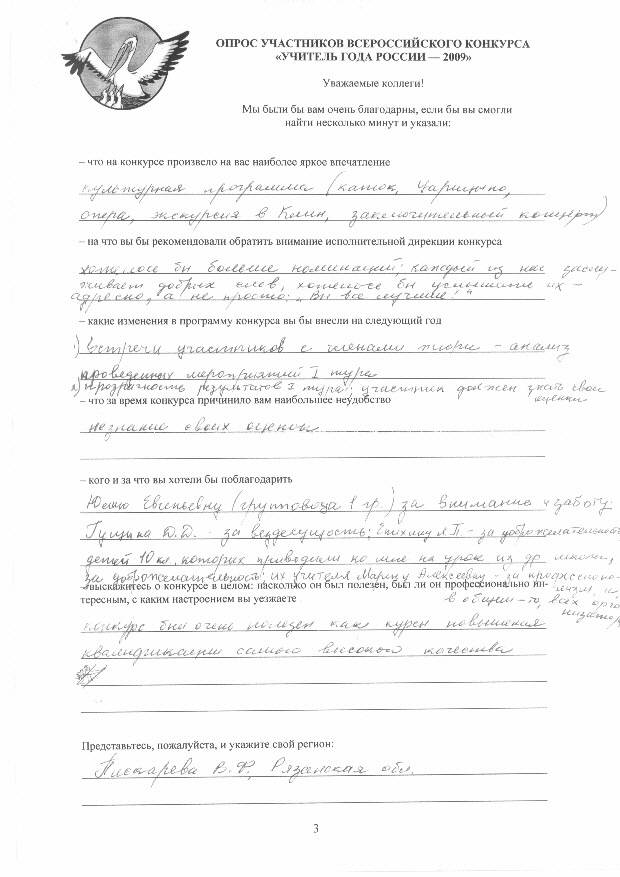 ОПРОС УЧАСТНИКОВ ВСЕРОССИЙСКОГО КОНКУРСА
«УЧИТЕЛЬ ГОДА РОССИИ — 2009»
Уважаемые коллеги!
Мы были бы вам очень благодарны, если бы вы смогли
найти несколько минут и указали:
– что на конкурсе произвело на вас наиболее яркое впечатление
культурная программа (каток, Царицыно,
опера, экскурсия в Клин, заключительный концерт)
– на что вы бы рекомендовали обратить внимание исполнительной дирекции конкурса
хотелось бы больше номинаций: каждый из нас заслу-
живает добрых слов, хотелось бы услышать их –
адресно, а не просто: „Вы все лучшие!"
– какие изменения в программу конкурса вы бы внесли на следующий год
1) Встречи участников с членами жюри – анализ
проведенных мероприятий I тура
2) прозрачность результатов I тура: участник должен знать свои
оценки
– что за время конкурса причинило вам наибольшее неудобство
незнание своих оценок
– кого и за что вы хотели бы поблагодарить
Юлию Евгеньевну (групповода 1 гр.) за внимание и заботу;
Гущина Д.Д. – за вездесущность; – за доброжелательность
детей 10 кл., которых приводили ко мне на урок из др. школы,
за доброжелательность; их учителя Марину Алексеевну – за профессиона-
лизм, и,
в общем-то, всех орга
низатор
– выскажитесь о конкурсе в целом: насколько он был полезен, был ли он профессионально ин-
тересным, с каким настроением вы уезжаете
конкурс был очень полезен как курсы повышения
квалификации самого высокого качества
Представьтесь, пожалуйста, и укажите свой регион:
Пискарева В.Ф., Рязанская обл.
3